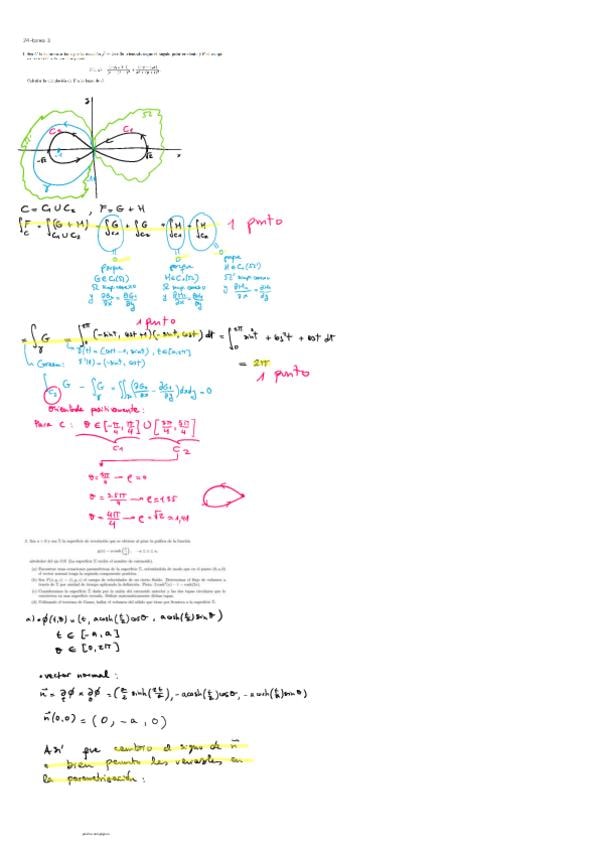 24-tarea 3
Calcula la circulación de F a lo largo de C.
y
C₂ C₁ Ω
-√2 -1 √2 x
γ
C = C₁ ∪ C₂ , F = G + H
∫_C F = ∫_{C₁∪C₂} (G + H) = ∫_{C₁} G + ∫_{C₂} G + ∫_{C₁} H + ∫_{C₂} H 1 punto
0 0 0
porque porque porque
G ∈ C₁(Ω) H ∈ C₁(Ω) H ∈ C₁(Ω')
Ω simp. conexo Ω simp. conexo Ω' simp. conexo
y ∂G₂/∂x = ∂G₁/∂y y ∂H₂/∂x = ∂H₁/∂y y ∂H₂/∂x = ∂H₁/∂y
1 punto
= ∫_γ G = ∫_0^{2π} (-sin t, cos t + 1)(-sin t, cos t) dt = ∫_0^{2π} sin² t + cos² t + cos t dt
γ(t) = (cos t - 1, sin t), t ∈ [0, 2π]
Green: γ'(t) = (-sin t, cos t) = 2π
1 punto
∫_{C₂} G - ∫_γ G = ∬ (∂G₂/∂x - ∂G₁/∂y) dx dy = 0
Orientada positivamente:
Para C : θ ∈ [-π/4, π/4] ∪ [3π/4, 5π/4]
C₁ C₂
θ = 3π/4 → ρ = 0
θ = 3.5π/4 → ρ = 1,
θ = 4π/4 → ρ = √2 ≈ 1,41
2. Sea a > 0 y sea Σ la superficie de revolución que se obtiene al girar la gráfica de la función
g(x) = a cosh(x/a), -a ≤ x ≤ a,
alrededor del eje OX (La superficie Σ recibe el nombre de catenoide).
(a) Encontrar unas ecuaciones paramétricas de la superficie Σ, orientándola de modo que en el punto (0, a, 0)
el vector normal tenga la segunda componente positiva.
(b) Sea F(x, y, z) = (x, y, z) el campo de velocidades de un cierto fluido. Determinar el flujo de volumen a
través de Σ por unidad de tiempo aplicando la definición.
(c) Consideramos la superficie Σ dada por la unión del catenoide anterior y las dos tapas circulares que lo
convierten en una superficie cerrada. Definir matemáticamente dichas tapas.
(d) Utilizando el teorema de Gauss, hallar el volumen del sólido que tiene por frontera a la superficie Σ.
a) • φ(t, θ) = (t, a cosh(t/a) cos θ, a cosh(t/a) sin θ)
t ∈ [-a, a]
θ ∈ [0, 2π]
• vector normal :
n(0,0) = (0, -a, 0)
Así que cambio el signo de n
o bien permuto las variables en
la parametrización :